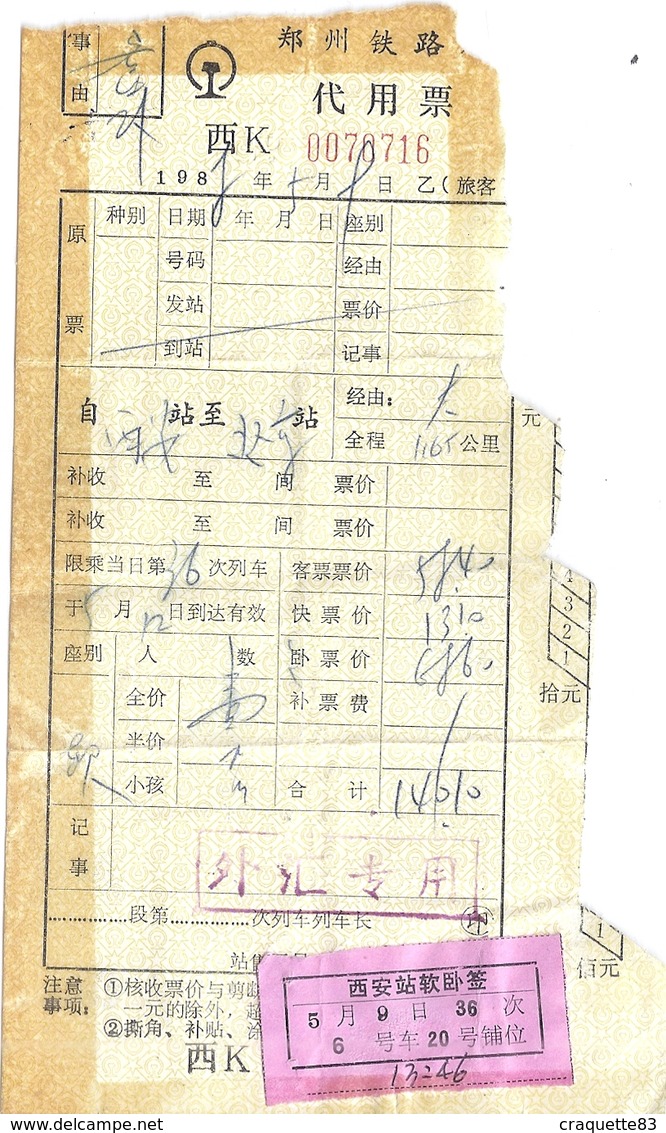 事由
郑州铁路
代用票
西K 0070716
198 年5月 日 乙(旅客
原票 种别 日期 年月日 座别
号码 经由
发站 票价
到站 记事
自 西安 站至 北京 站 经由:
全程 1165 公里
元
补收 至 间 票价
补收 至 间 票价
限乘当日第36次列车 客票票价 58.40
于5月 日到达有效 快票价 13.10
座别 人数 卧票价 68.60
全价 补票费
半价
软 小孩 合计 140.10
4
3
2
1
拾元
记事
外汇专用
段第 次列车列车长 印
1
佰元
站售
注意事项: ①核收票价与剪
一元的除外,
②撕角、补贴、涂
西K
西安站软卧签
5月9日36次
6号车20号铺位
13=46
delcampe.net
craquette83